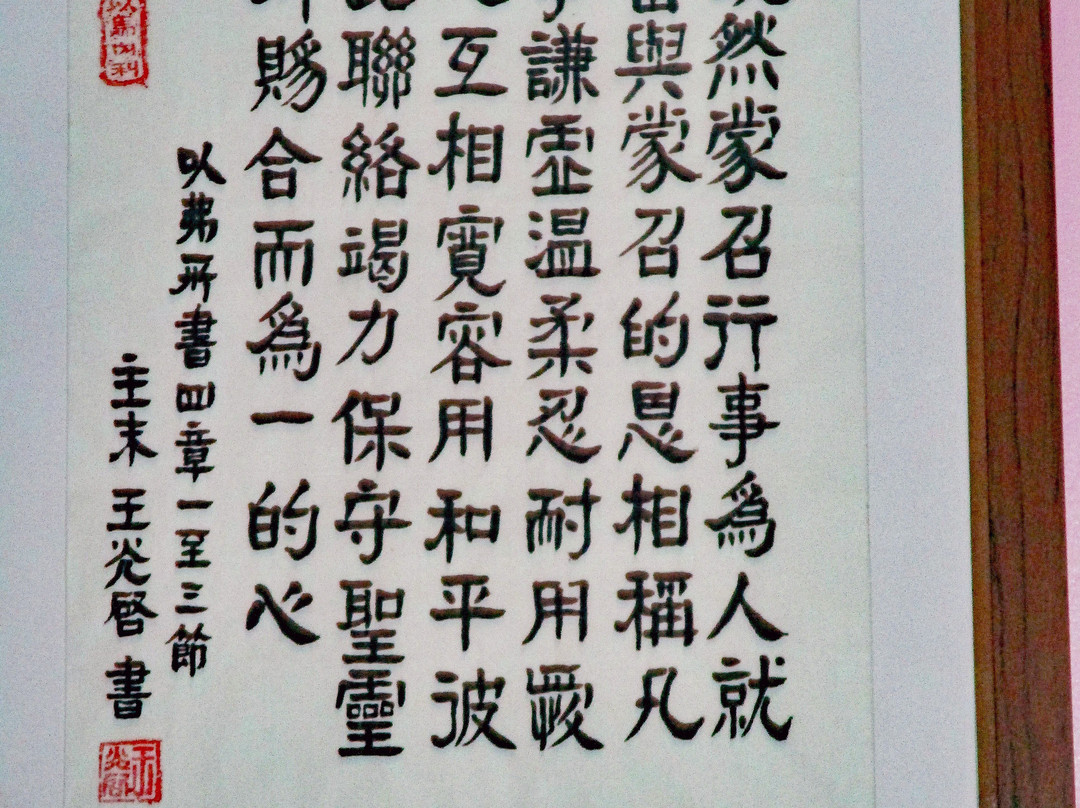 然蒙召行事爲人就
與蒙召的恩相稱凡
謙虛温柔忍耐用愛
互相寬容用和平彼
聯絡竭力保守聖靈
賜合而爲一的心
以弗所書四章一至三節
主末王光啓書
以馬內利